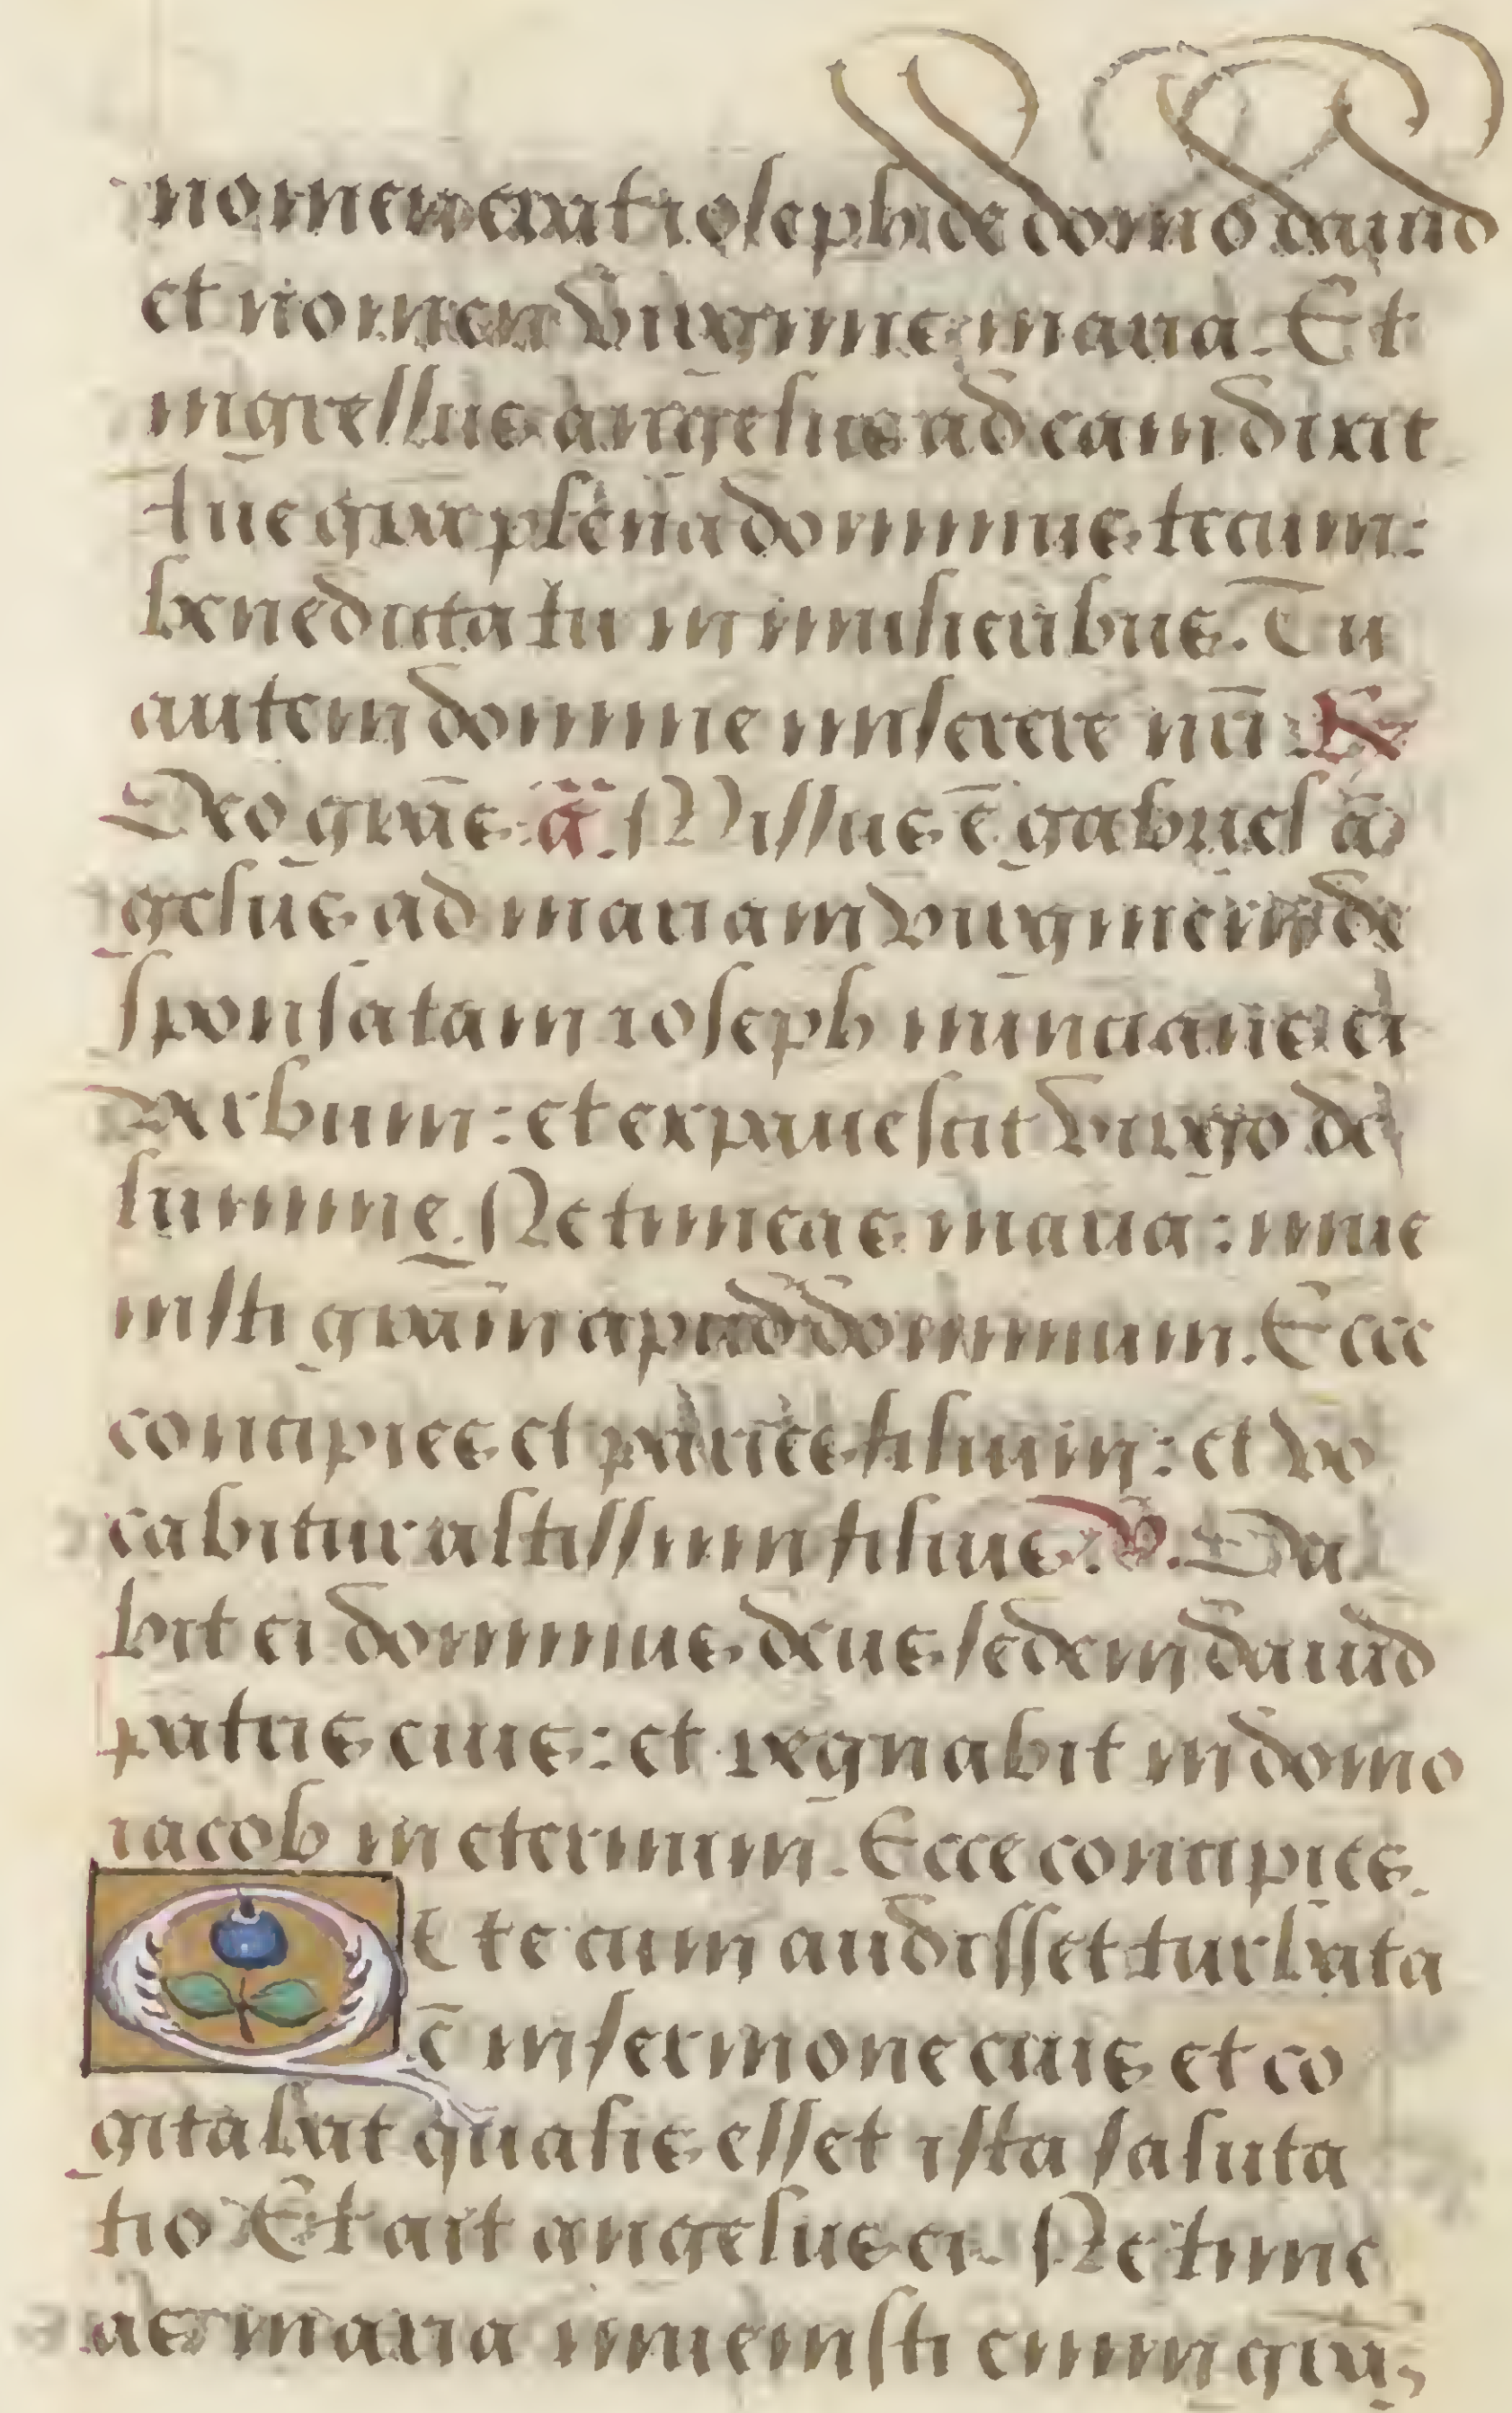 nomen erat ioseph de domo dauid
et nomen virginis maria. Et
ingressus angelus ad eam dixit
Aue gra plena dominus tecum:
benedicta tu in mulieribus. Tu
autem domine miserere nri ℟
Deo grās. ā. Missus ē gabriel ā
gelus ad mariam virginem de
sponsatam ioseph nuncians ei
verbum: et expauescit virgo de
lumine. Ne timeas maria: inue
nisti grām apud dominum. Ecce
concipies et paries filium: et vo
cabitur altissimi filius. ℣. Da
bit ei dominus deus sedem dauid
patris eius: et regnabit in domo
iacob in eternum. Ecce concipies.
Q Ue cum audisset turbata
ē in sermone eius et co
gitabat qualis esset ista saluta
tio Et ait angelus ei. Ne time
as maria inuenisti enim grā,